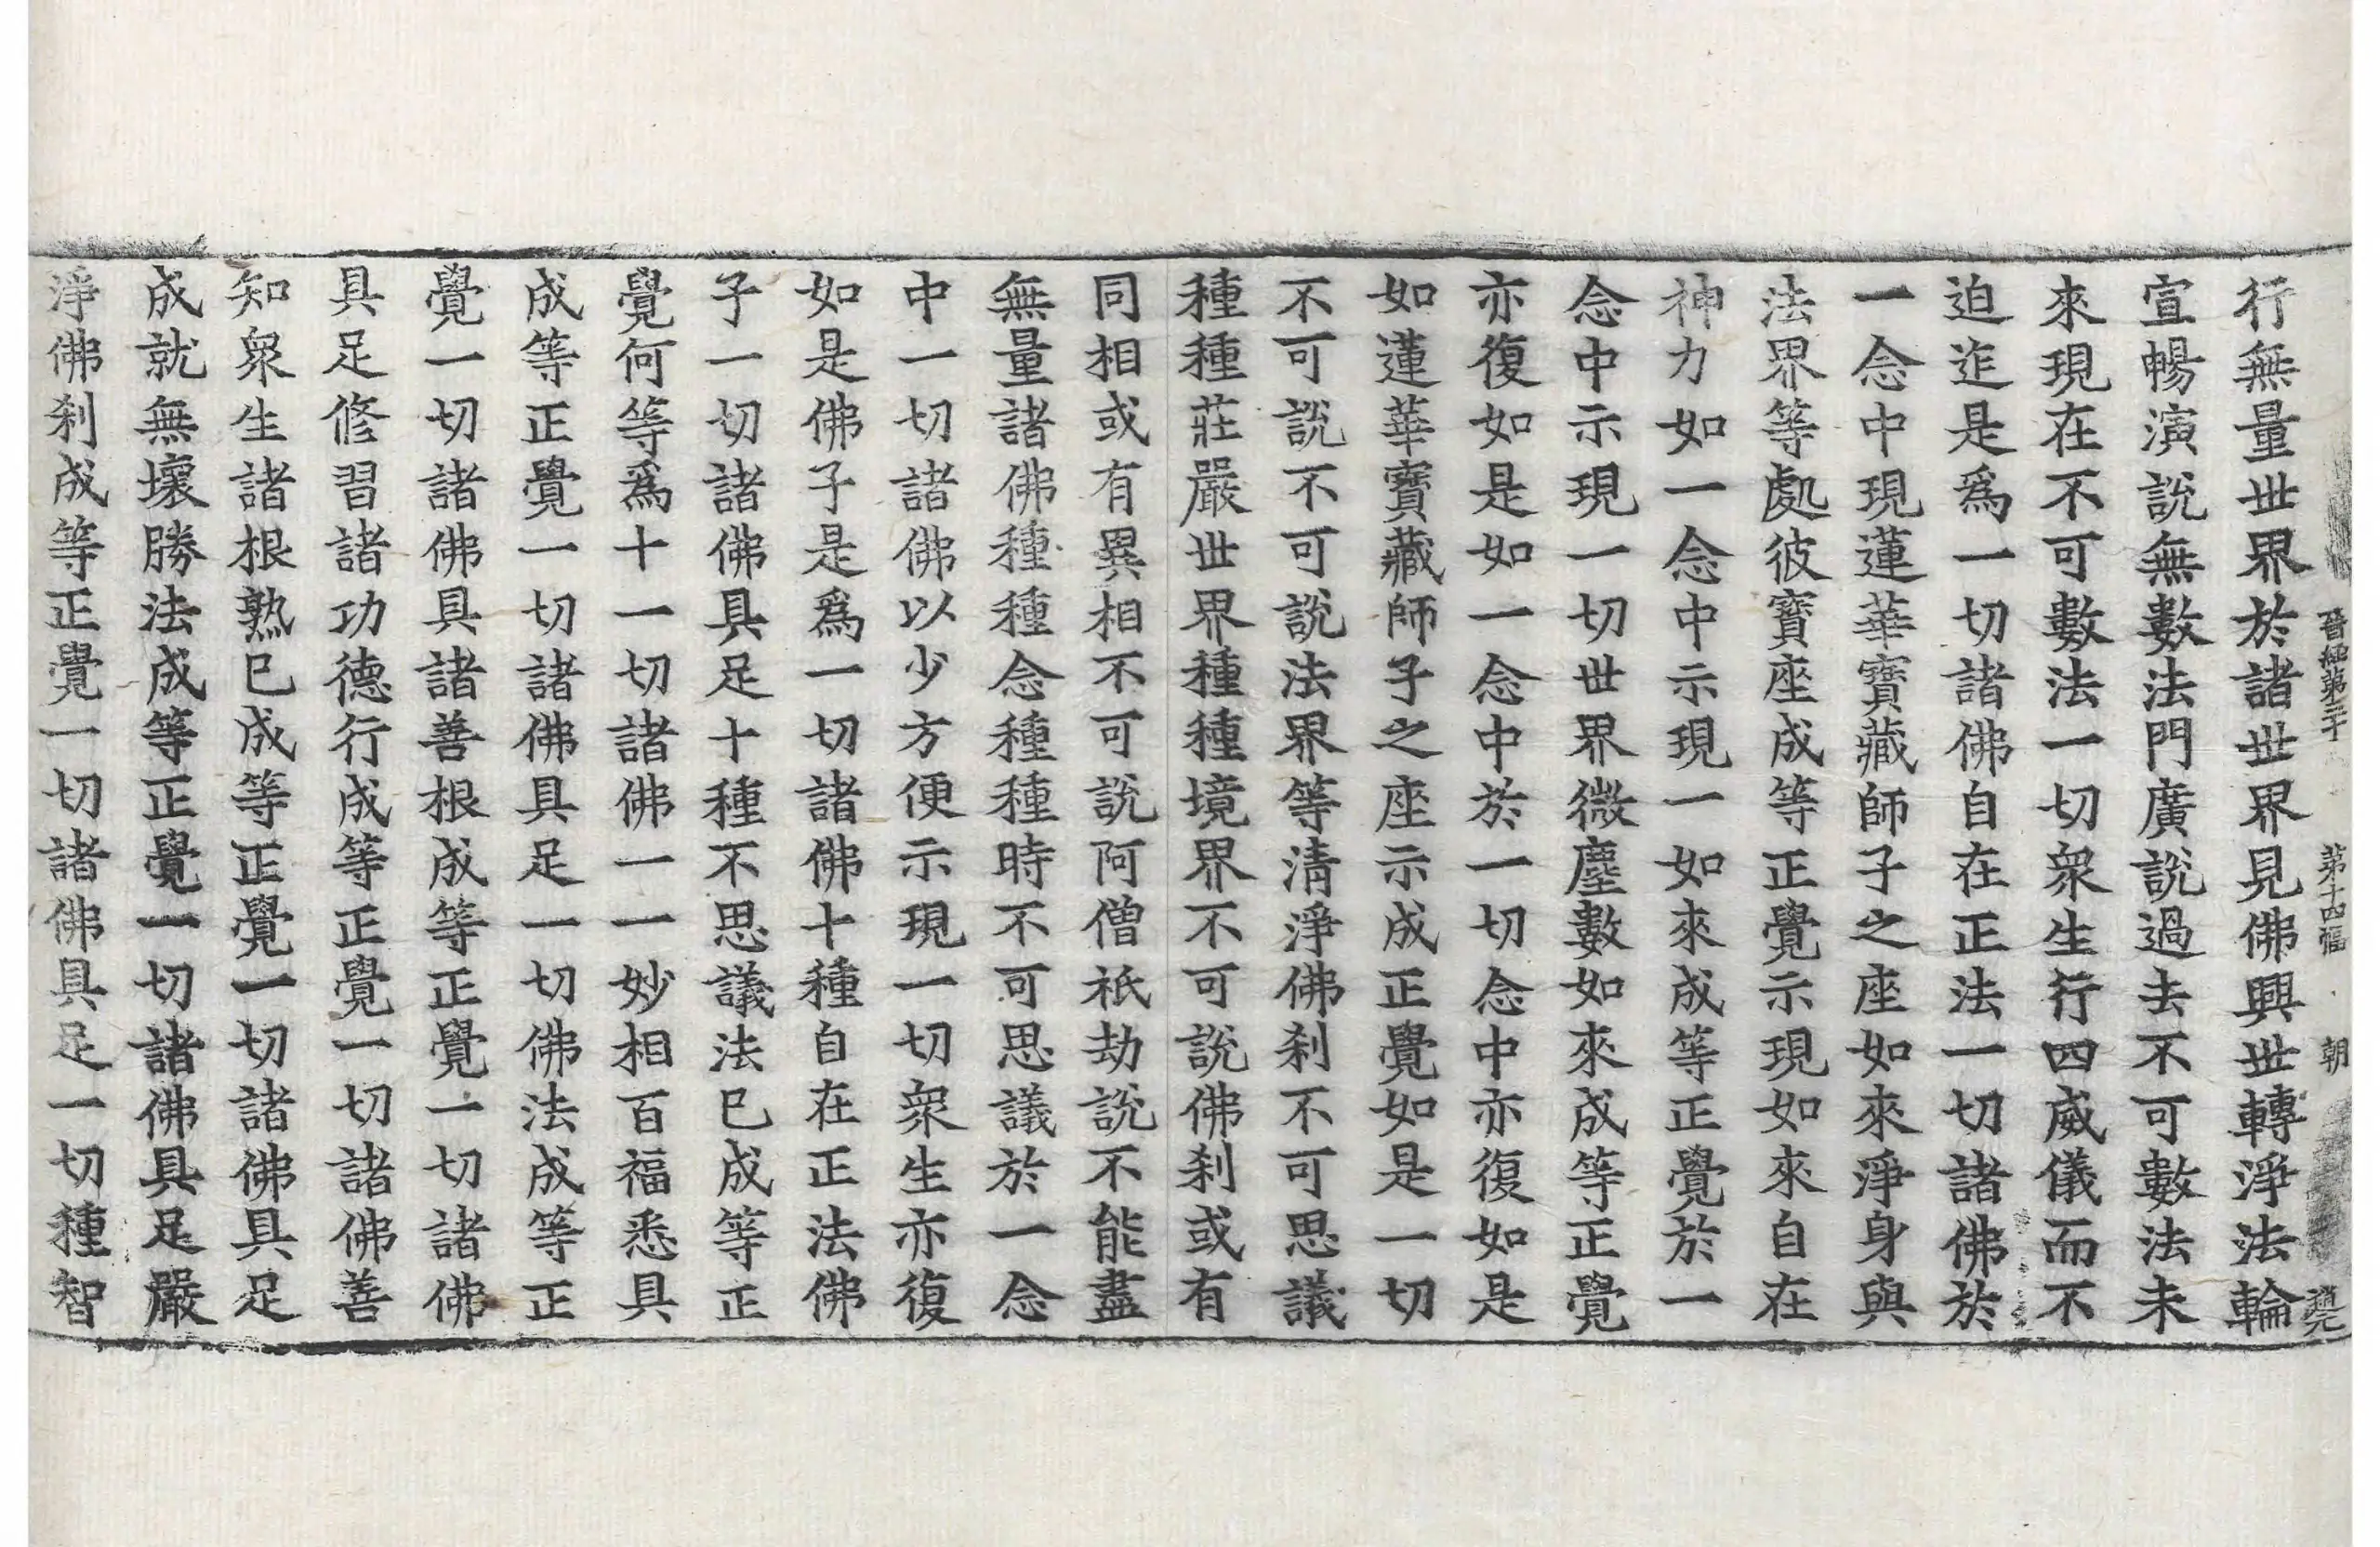 晉經第三十 第十四幅 朝
行無量世界於諸世界見佛興世轉淨法輪
宣暢演說無數法門廣說過去不可數法未
來現在不可數法一切衆生行四威儀而不
迫迮是爲一切諸佛自在正法一切諸佛於
一念中現蓮華寶藏師子之座如來淨身與
法界等處彼寶座成等正覺示現如來自在
神力如一念中示現一如來成等正覺於一
念中示現一切世界微塵數如來成等正覺
亦復如是如一念中於一切念中亦復如是
如蓮華寶藏師子之座示成正覺如是一切
不可說不可說法界等清淨佛刹不可思議
種種莊嚴世界種種境界不可說佛刹或有
同相或有異相不可說阿僧祇劫說不能盡
無量諸佛種種念種種時不可思議於一念
中一切諸佛以少方便示現一切衆生亦復
如是佛子是爲一切諸佛十種自在正法佛
子一切諸佛具足十種不思議法已成等正
覺何等爲十一切諸佛一一妙相百福悉具
成等正覺一切諸佛具足一切佛法成等正
覺一切諸佛具諸善根成等正覺一切諸佛
具足修習諸功德行成等正覺一切諸佛善
知衆生諸根熟已成等正覺一切諸佛具足
成就無壞勝法成等正覺一切諸佛具足嚴
淨佛刹成等正覺一切諸佛具足一切種智